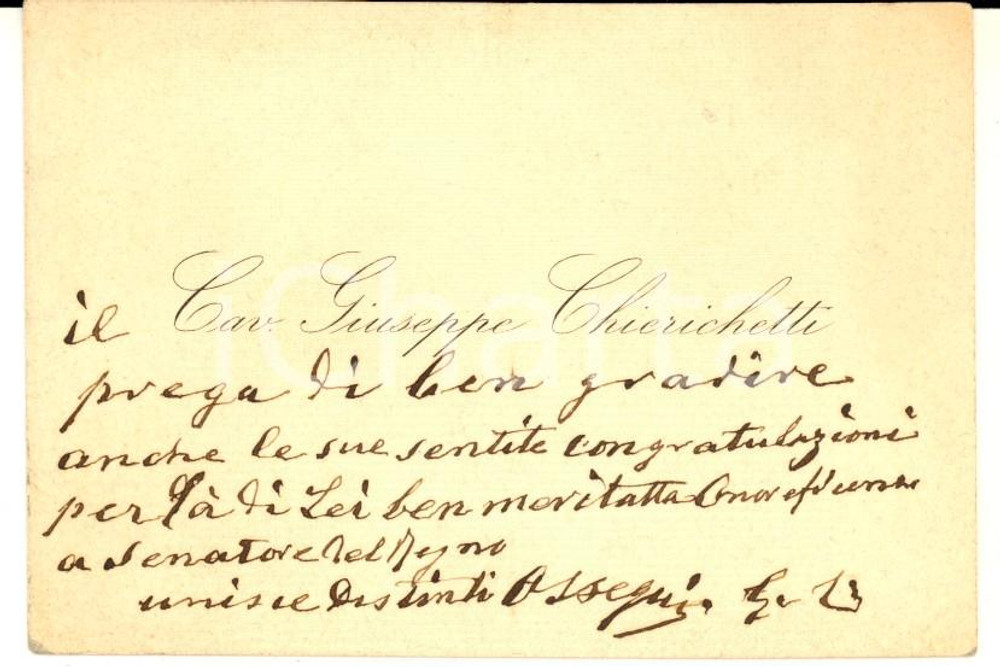 il Cav. Giuseppe Chierichetti
prega di ben gradire
anche le sue sentite congratulazioni
per la di Lei ben meritatta Onoreficenza
a Senatore del Regno
unisce Distinti Ossequi.
iCharta